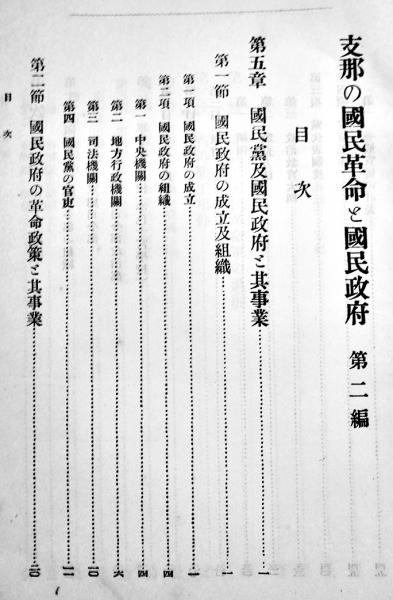 支那の國民革命と國民政府 第二編
目次
第五章 國民黨及國民政府と其事業……一
第一節 國民政府の成立及組織……一
第一項 國民政府の成立……一
第二項 國民政府の組織……四
第一 中央機關……四
第二 地方行政機關……六
第三 司法機關……一〇
第四 國民黨の官吏……一一
第二節 國民政府の革命政策と其事業……二〇
目次